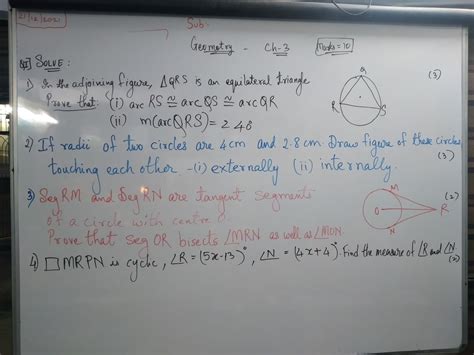 21/12/2021
Sub:
Geometry - Ch-3
Marks = 10
Q1] SOLVE:
1) In the adjoining figure, ΔQRS is an equilateral triangle (3)
Prove that: (i) arc RS ≅ arc QS ≅ arc QR
(ii) m(arc QRS) = 240
Q
R
S
2) If radii of two circles are 4cm and 2.8 cm. Draw figure of these circles
touching each other - (i) externally (ii) internally. (3)
3) Seg RM and Seg RN are tangent segments (2)
of a circle with centre O
Prove that Seg OR bisects ∠MRN as well as ∠MON.
M
O
R
N
4) □ MRPN is cyclic, ∠R = (5x-13)°, ∠N = (4x+4)°. Find the measure of ∠R and ∠N (2)